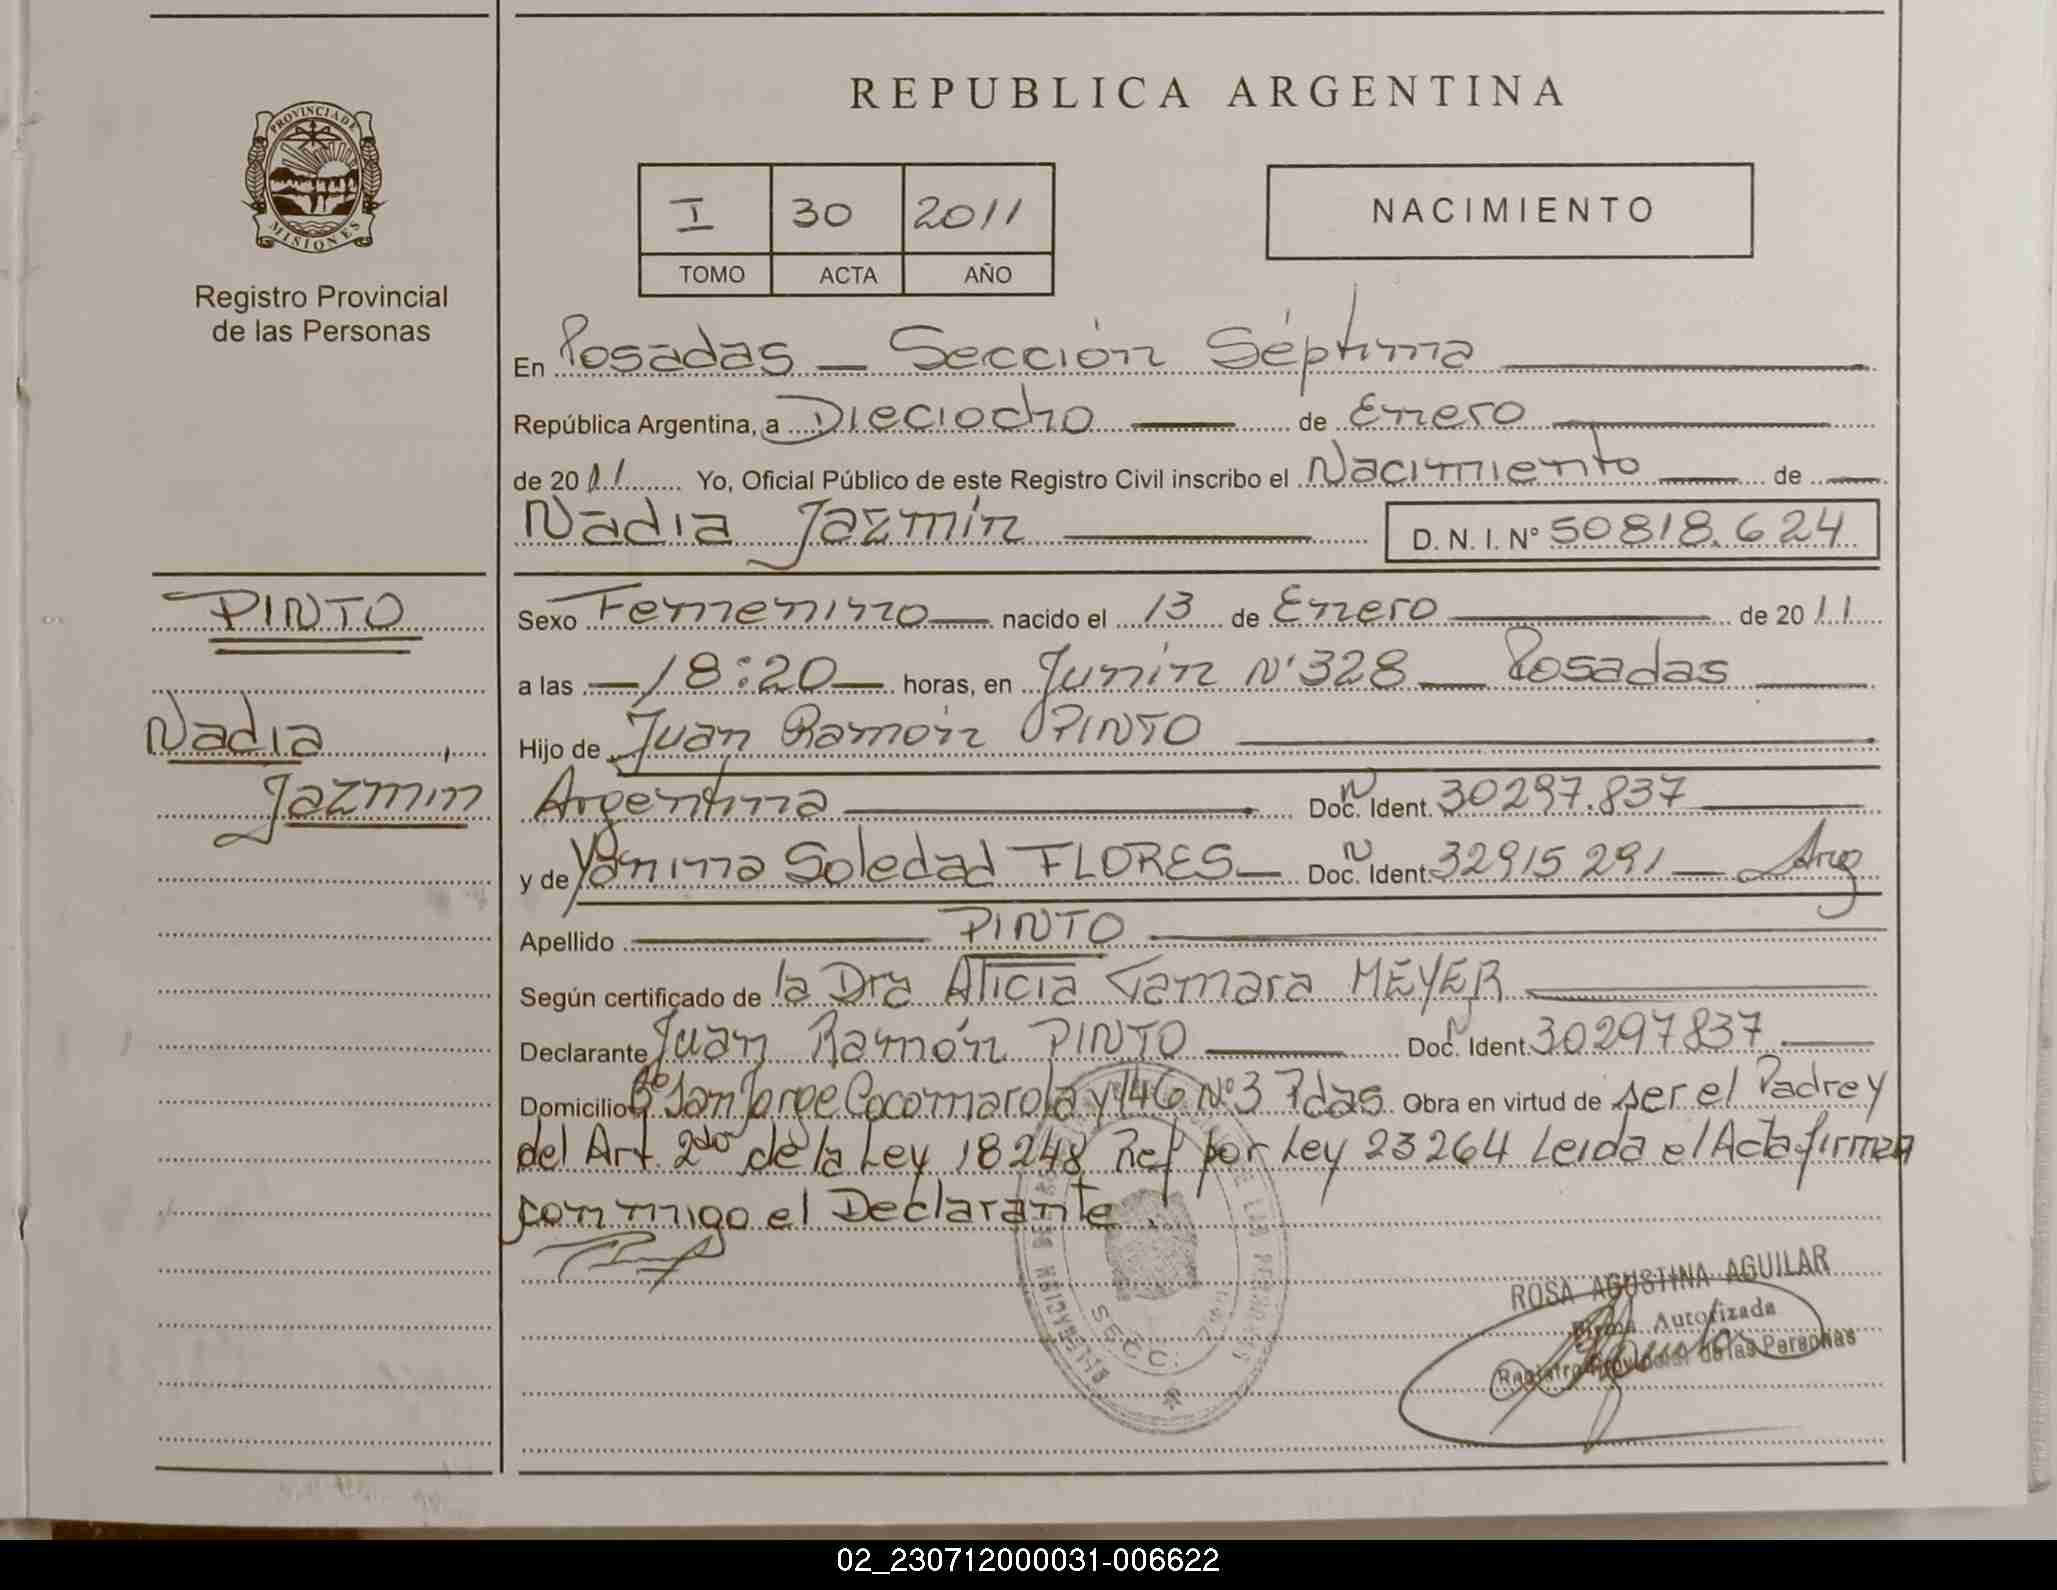 REPUBLICA ARGENTINA
PROVINCIA DE
MISIONES
Registro Provincial
de las Personas
I 30 2011
TOMO ACTA AÑO
NACIMIENTO
En Posadas — Sección Séptima
República Argentina, a Dieciocho de Enero
de 2011 Yo, Oficial Público de este Registro Civil inscribo el Nacimiento de
Nadia Jazmín D. N. I. Nº 50818.624
PINTO
Nadia
Jazmin
Sexo Femenino nacido el 13 de Enero de 2011
a las — 18:20 — horas, en Junín Nº 328 — Posadas
Hijo de Juan Ramón PINTO
Argentina Doc. N Ident. 30297.837
y de Yanina Soledad FLORES — Doc. N Ident. 32915291 — Arg
Apellido PINTO
Según certificado de la Dra Alicia Tamara MEYER
Declarante Juan Ramón PINTO Doc. N Ident. 30297837
Domicilio Bº San Jorge Cocomarola y 146 Nº 3 Pdas Obra en virtud de ser el Padre y
del Art. 2do de la Ley 18248 Ref por Ley 23264 Leida el Acta firman
conmigo el Declarante.
SECC. 7
ROSA AGUSTINA AGUILAR
Firma Autorizada
Registro Provincial de las Personas
02_230712000031-006622